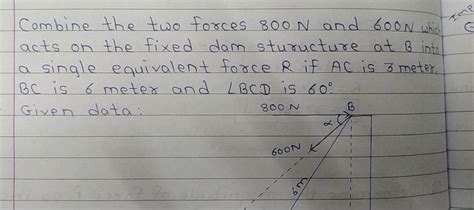 Combine the two forces 800N and 600N which
acts on the fixed dam sturucture at B into
a single equivalent force R if AC is 3 meter,
BC is 6 meter and ∠BCD is 60°
Given data:
800N
B
α
600N
6m